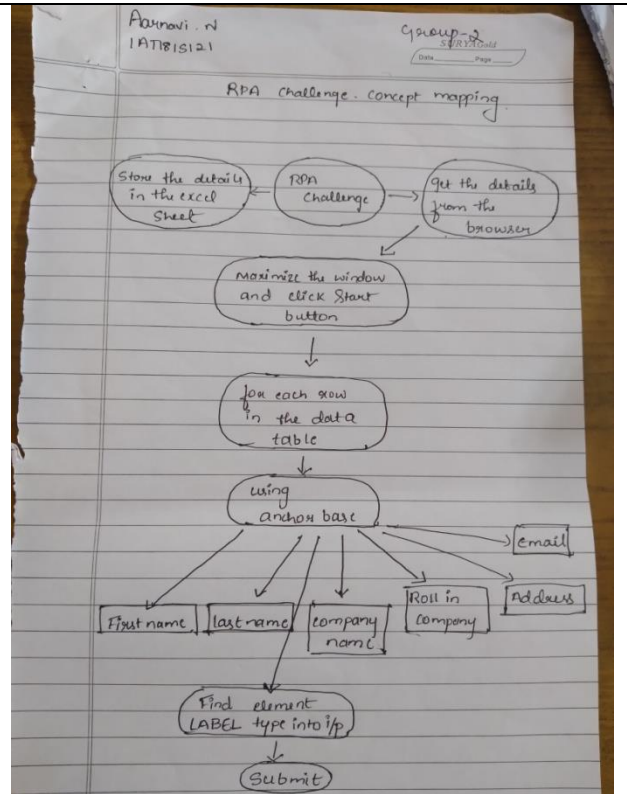 Aarnavi. N
1AT18IS121
Group-2
SURYAGold
Date Page
RPA Challenge. Concept mapping.
Store the details
in the excel
Sheet
RPA
Challenge
get the details
from the
browser
Maximize the window
and click Start
button
for each row
in the data
table
using
anchor base
email
First name
last name
company
name
Roll in
company
Address
Find element
LABEL type into i/p
Submit